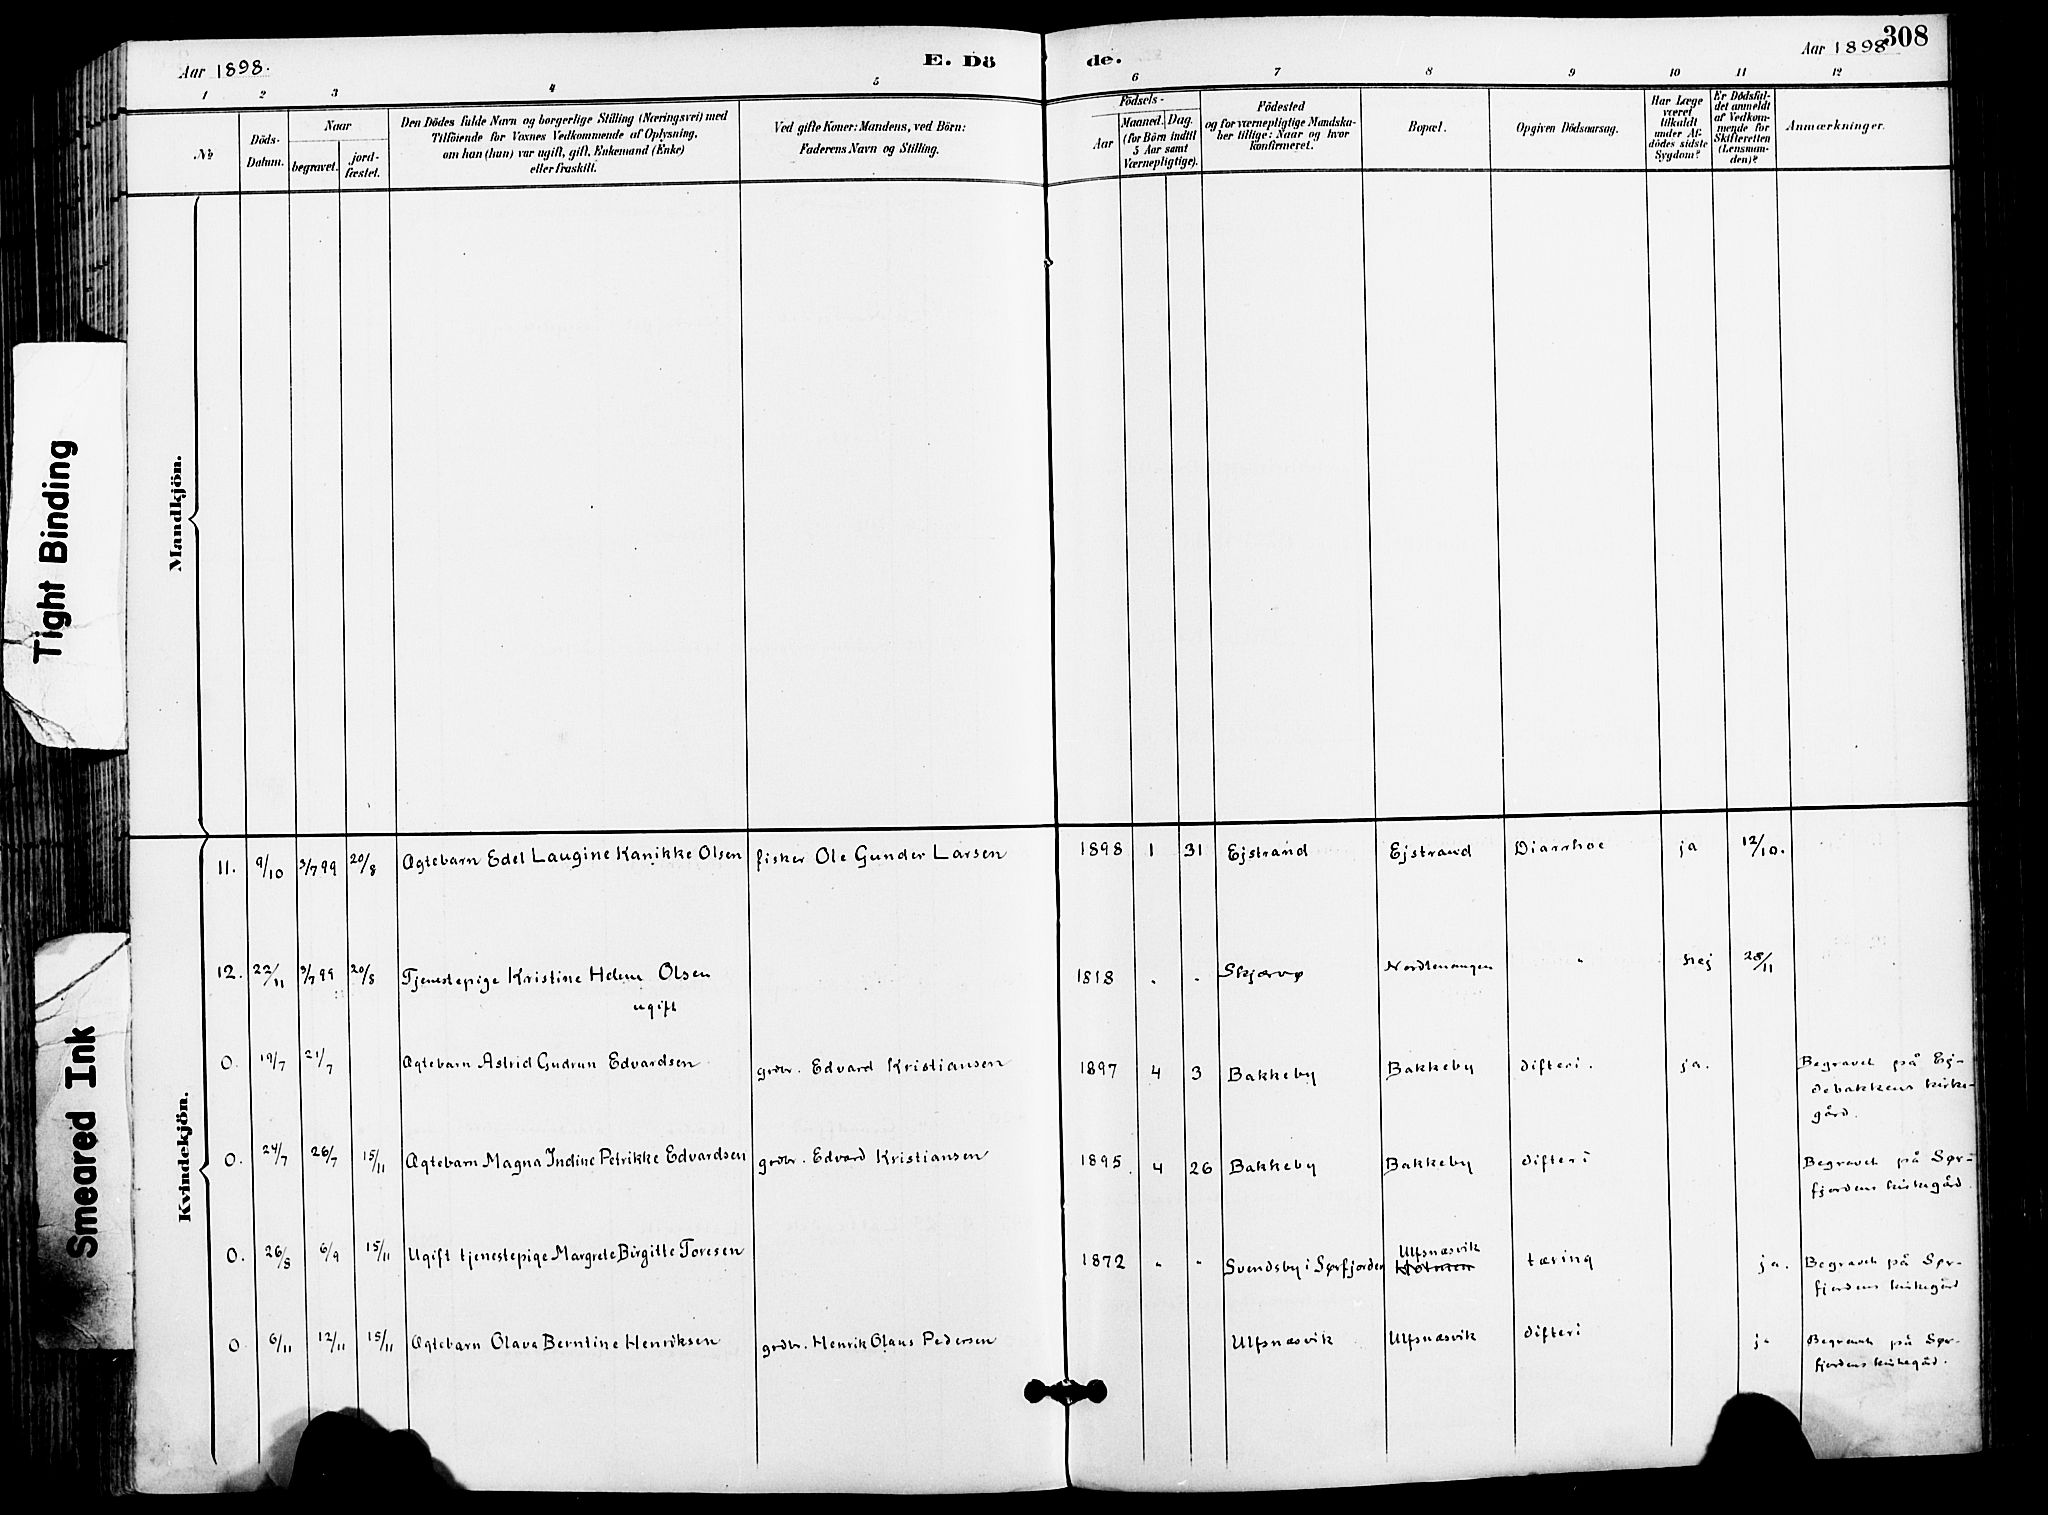 308
Aar 1898.
E. Dö
de.
Aar 1898
1 2 3 4 5 6 7 8 9 10 11 12
No
Döds-
Datum.
Naar
begravet.
jord-
fæstet.
Den Dödes fulde Navn og borgerlige Stilling (Næringsvei) med
Tilföiende for Voxnes Vedkommende af Oplysning,
om han (hun) var ugift, gift, Enkemand (Enke)
eller fraskilt.
Ved gifte Koner: Mandens, ved Börn:
Faderens Navn og Stilling.
Födsels-
Aar
Maaned. Dag.
(for Börn indtil
5 Aar samt
Værnepligtige).
Födested
og for værnepligtige Mandska-
ber tillige: Naar og hvor
konfirmeret.
Bopæl.
Opgiven Dödsaarsag.
Har Læge
været
tilkaldt
under Af-
dödes sidste
Sygdom?
Er Dödsfal-
det anmeldt
af Vedkom-
mende for
Skifteretten
(Lensman-
den)?
Anmærkninger.
Mandkjön.
Tight Binding
Smeared Ink
Kvindekjön.
11. 9/10 3/7 99 20/8 Ægtebarn Edel Laugine Kanikke Olsen fisker Ole Gunder Larsen 1898 1 31 Ejstrand Ejstrand Diarrhoe ja 12/10.
12. 22/11 3/7 99 20/8 Tjenestepige Kristine Helene Olsen 1818 " " Skjærvø Nordlenangen " Nej 28/11
ugift
0. 19/7 21/7 Ægtebarn Astrid Gudrun Edvardsen grdbr. Edvard Kristiansen 1897 4 3 Bakkeby Bakkeby difteri. ja. Begravet på Ej-
debakkens kirke-
gård.
0. 24/7 26/7 15/11 Ægtebarn Magna Indine Petrikke Edvardsen grdbr. Edvard Kristiansen 1895 4 26 Bakkeby Bakkeby difteri Begravet på Sør-
fjordens kirkegård.
0. 26/8 6/9 15/11 Ugift tjenestepige Margrete Birgitte Toresen 1872 " " Svendsby i Sørfjorden Ulfsnæsvik tæring ja. Begravet på Sør-
fjordens kirkegård
0 6/11 12/11 15/11 Ægtebarn Olava Berntine Henriksen grdbr. Henrik Olaus Pedersen Ulfsnæsvik Ulfsnæsvik difteri ja Begravet på Sør-
fjordens kirkegård.